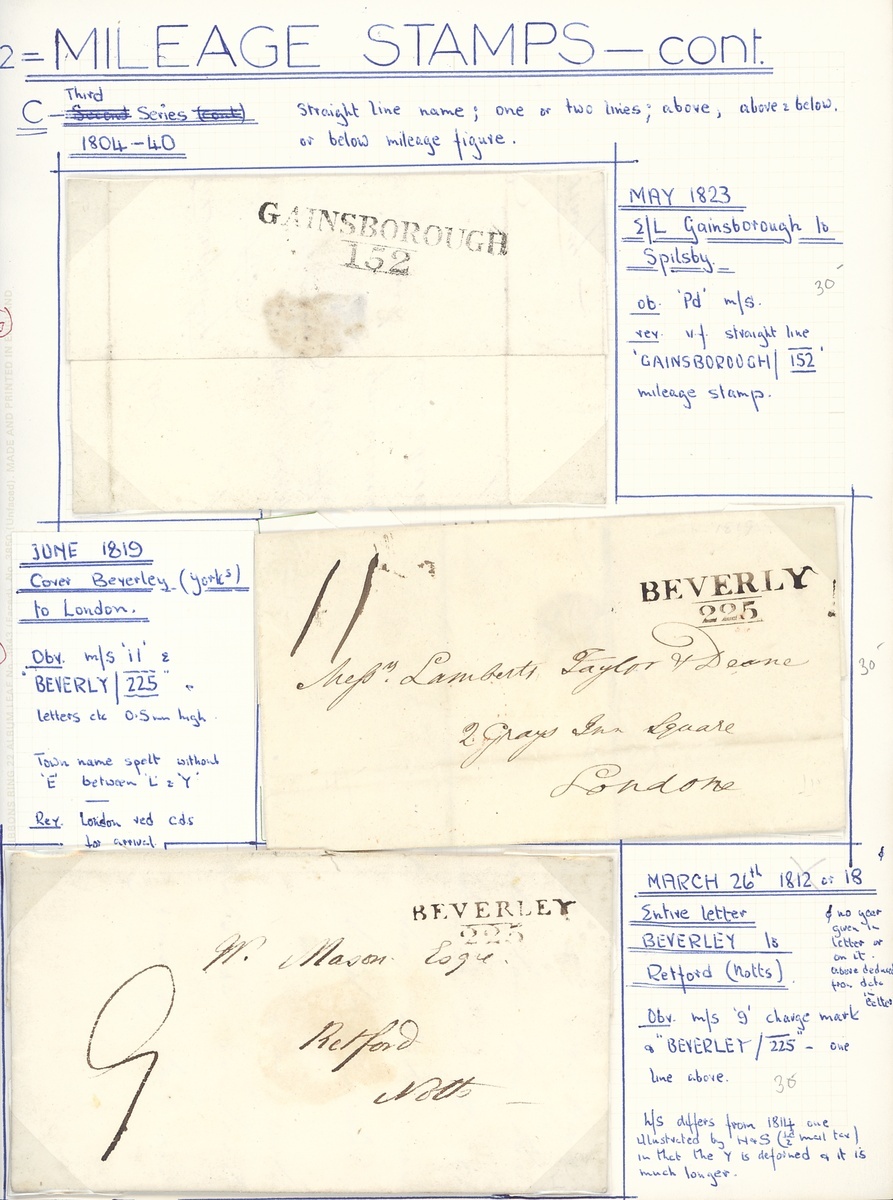 2 = MILEAGE STAMPS — cont.
C — Third
Second Series (cont)
1804-40
Straight line name; one or two lines; above, above & below.
or below mileage figure.
GAINSBOROUGH
152
MAY 1823
E/L Gainsborough to
Spilsby.
30
ob. 'Pd' m/s.
rev. v.f. straight line
'GAINSBOROUGH / 152'
mileage stamp.
JUNE 1819
Cover Beverley (Yorks)
to London.
Obv. m/s '11' &
"BEVERLY / 225"
letters 0.5mm high.
Town name spelt without
'E' between 'L' & 'Y'
Rev. London red cds
for arrival.
11
BEVERLY
225
Messrs. Lamberts Taylor & Deane
2 Grays Inn Square
London
30
BEVERLEY
225
W. Mason Esqre.
Retford
Notts
9
MARCH 26th 1812 or 18
Entire letter
BEVERLEY to
Retford (Notts)
no year
given in
letter or
on it.
above deduced
from date
in letter
Obv. m/s '9' charge mark
& "BEVERLEY / 225" — one
line above.
30
h/s differs from 1814 one
illustrated by (½ mail tax)
in that the Y is deformed & it is
much longer.
MADE AND PRINTED IN